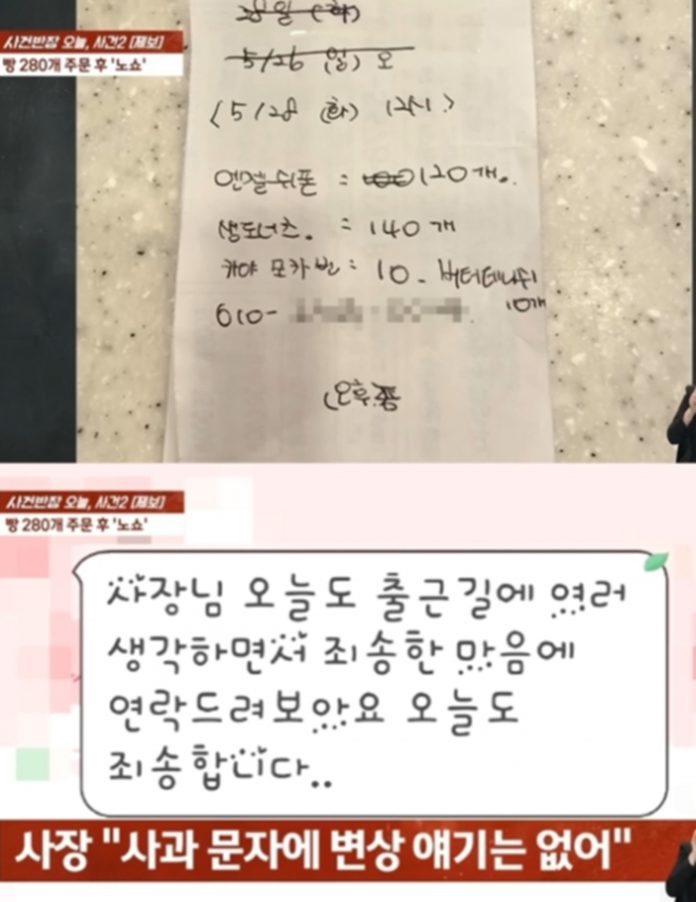 28일 (화)
사건반장 오늘, 사건2 [제보]
빵 280개 주문 후 '노쇼'
5/26 (일) 오
(5/28 (화) 12시)
엔젤쉬폰 : 100 120개.
생도너츠. = 140개
카야 모카번 : 10 - 버터데니쉬
10개
010-
(오후
사건반장 오늘, 사건2 [제보]
빵 280개 주문 후 '노쇼'
사장님 오늘도 출근길에 여러
생각하면서 죄송한 마음에
연락드려보아요 오늘도
죄송합니다..
사장 "사과 문자에 변상 얘기는 없어"